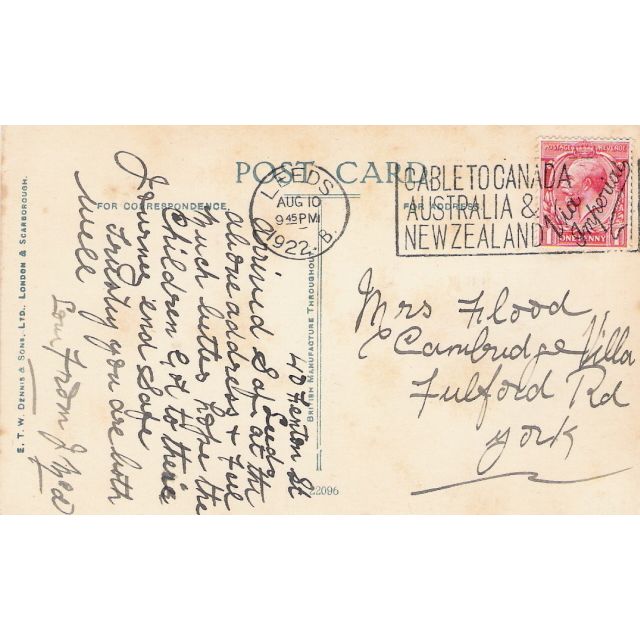 POST CARD
FOR CORRESPONDENCE
FOR ADDRESS
E. T. W. DENNIS & SONS, LTD., LONDON & SCARBOROUGH.
BRITISH MANUFACTURE THROUGHOUT
22096
LEEDS
AUG 10
9 45 PM
1922. B
CABLE TO CANADA
AUSTRALIA &
NEW ZEALAND
Via
Imperial
POSTAGE REVENUE
ONE PENNY
Mrs Flood
Cambridge Villa
Fulford Rd
York
40 Fenton St
Leeds
Arrived Saf at the
above address & feel
much better hope the
Children Got to there
Journer end Safe
you are both
Well
From J